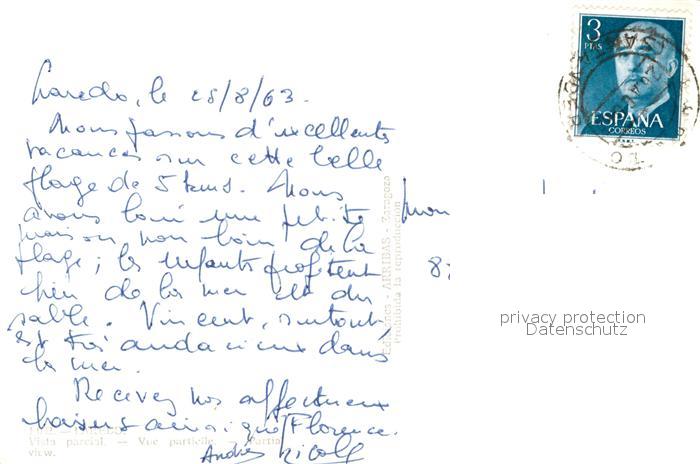 Laredo, le 28/8/63.
Nous passons d'excellents
vacances sur cette belle
plage de 5 kms. Nous
avons loué une petite
maison non loin de la
plage; les enfants profitent
bien de la mer et du
sable. Vincent, surtout,
est très audacieux dans
la mer.
Recevez nos affectueux
baisers ainsi que Florence.
Andrée Nicole
Vista parcial. — Vue partielle. — Partial
view.
Ediciones - ARRIBAS - Zaragoza
Prohibida la reproducción
3
PTAS
ESPAÑA
CORREOS
privacy protection
Datenschutz